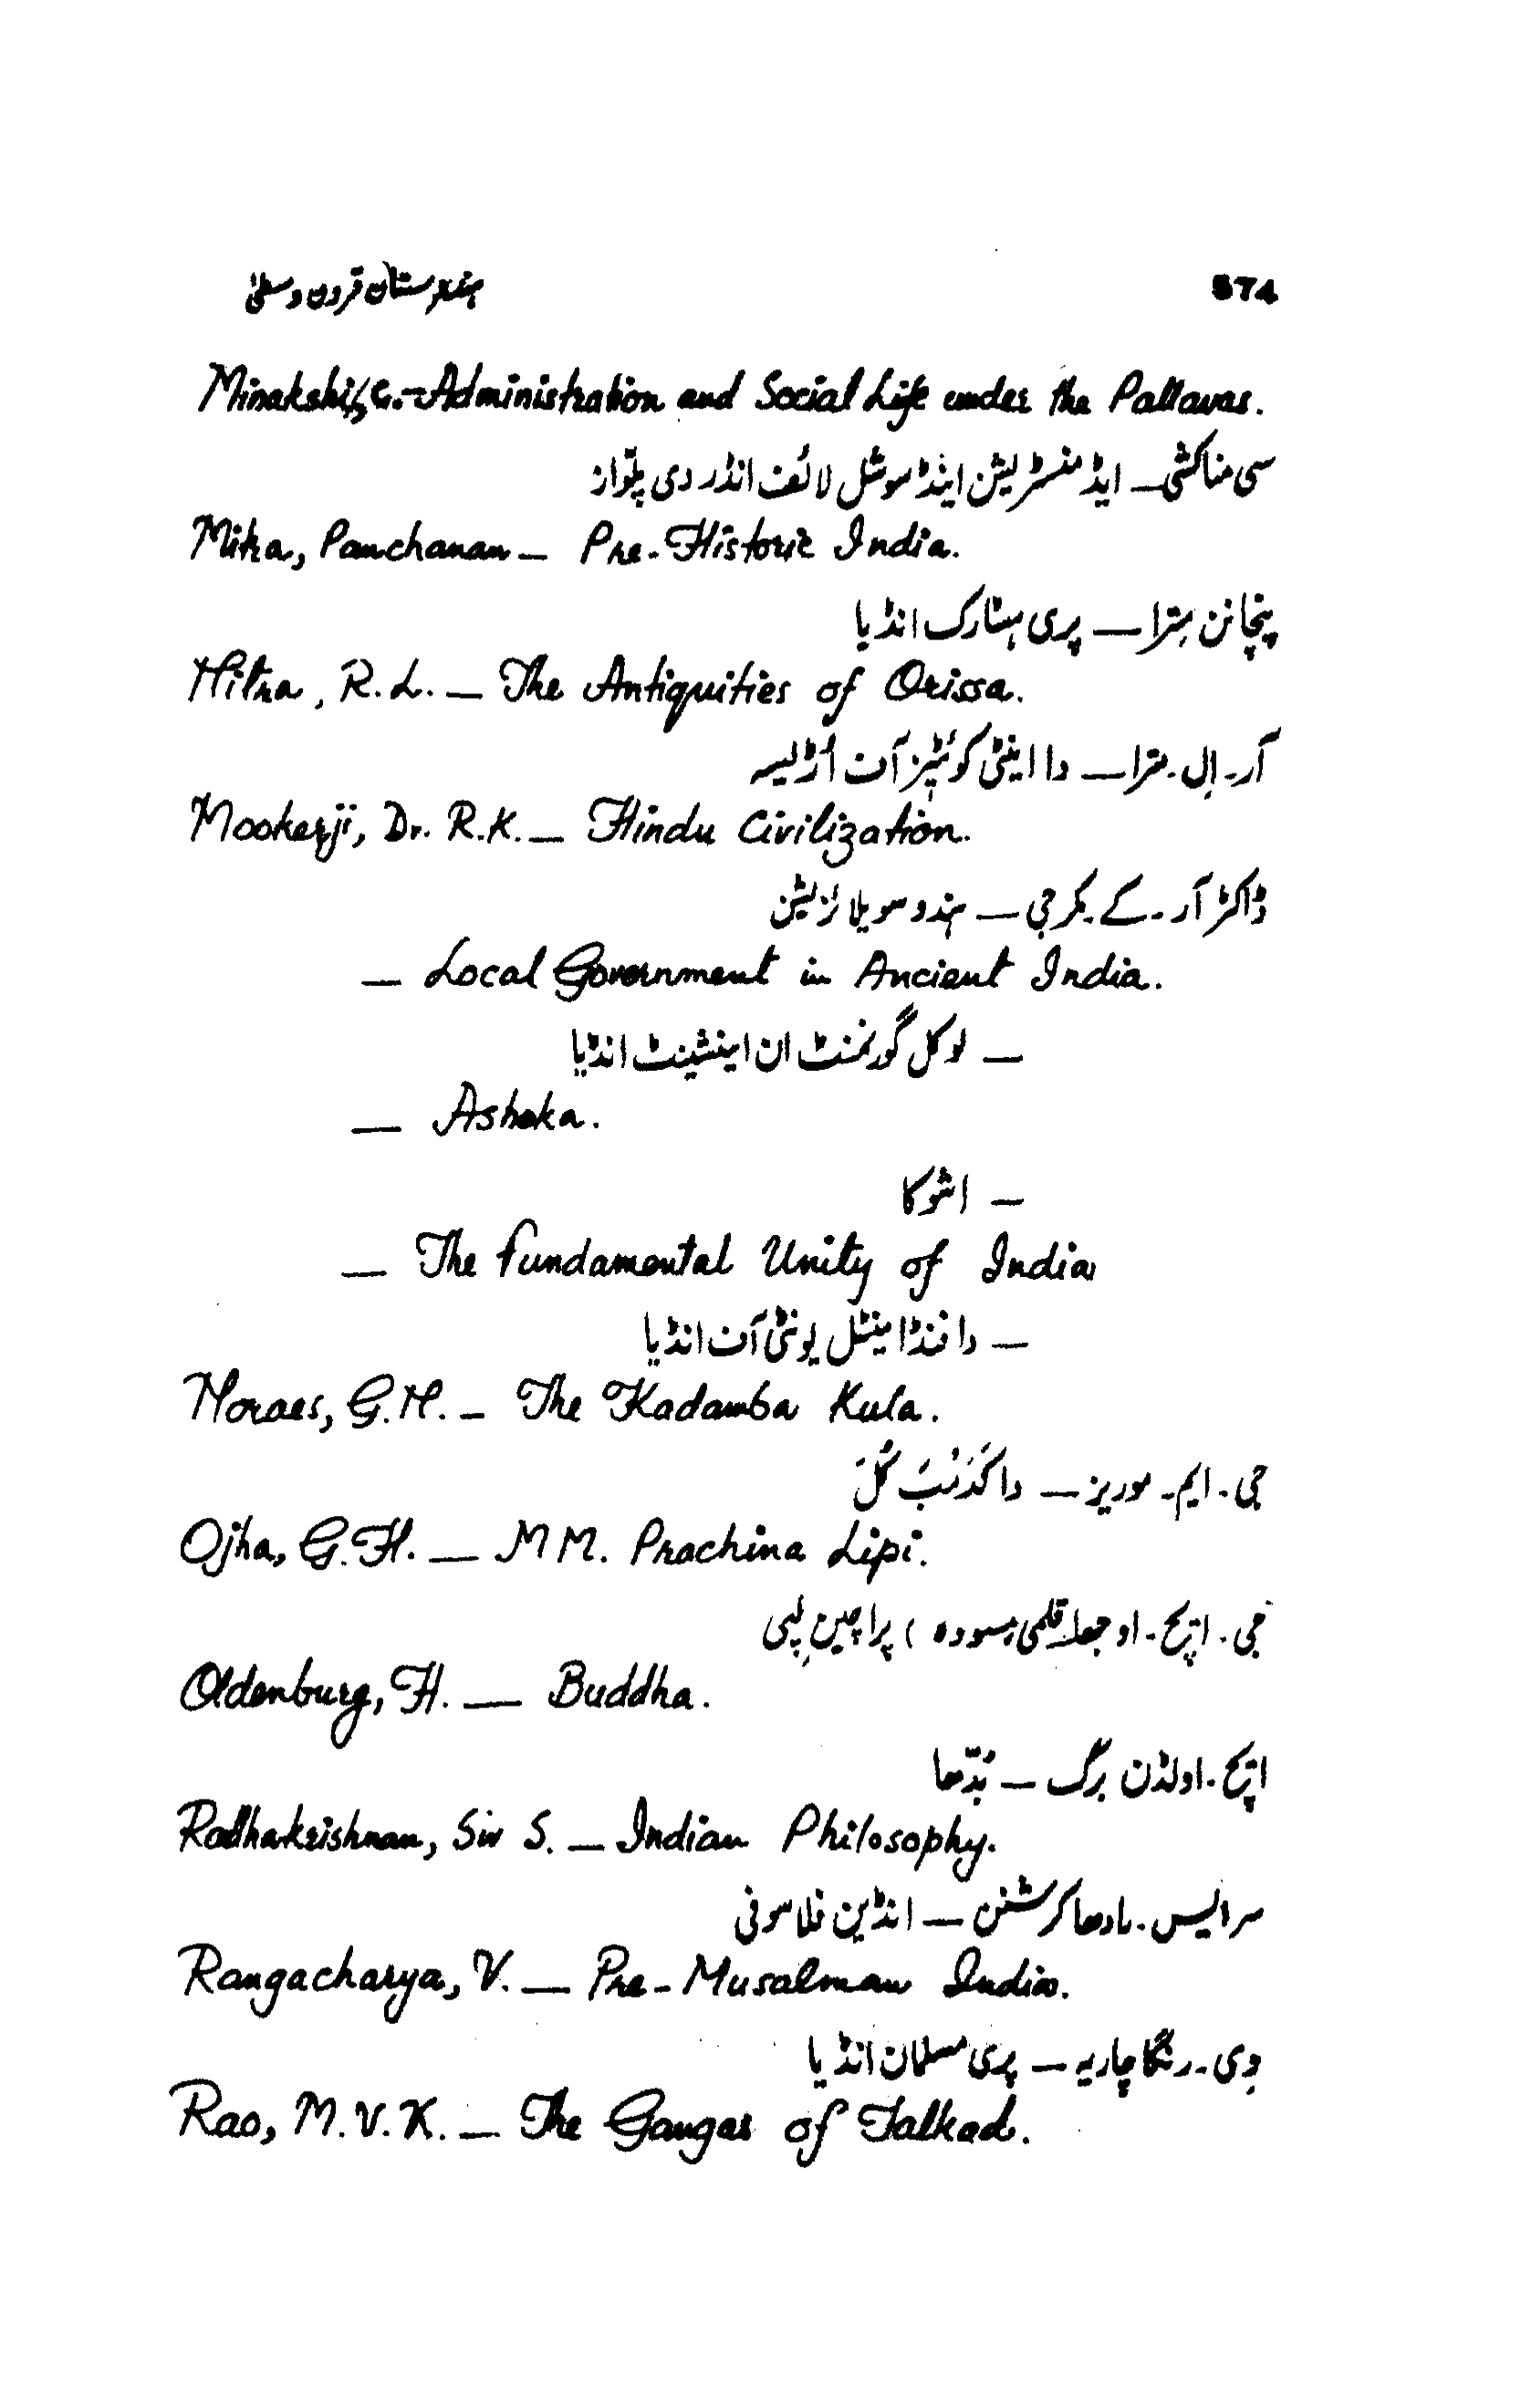 574 ہندوستان قرون وسطیٰ
Minakshi, C. - Administration and Social Life under the Pallavas.
سی مناکشی ــ ایڈمنسٹریشن اینڈ سوشل لائف انڈر دی پلّواز
Mitra, Panchanan — Pre-Historic India.
پنچانن مِترا ــ پری ہسٹارک انڈیا
Mitra, R.L. — The Antiquities of Orissa.
آر۔ اِل۔ مترا ــ دا اینٹی کوئٹیز آف اُڑلیسہ
Mookerji, Dr. R.K. — Hindu Civilization.
ڈاکٹر آر۔ کے۔ مکرجی ــ ہندو سویلائزیشن
— Local Government in Ancient India.
ــ لوکل گورنمنٹ ان اینشینٹ انڈیا
— Ashoka.
ــ اشوکا
— The Fundamental Unity of India
ــ دا فنڈامینٹل یونٹی آف انڈیا
Moraes, G.M. — The Kadamba Kula.
جی۔ ایم۔ موریز ــ دا کَدَنْبَ کُلَ
Ojha, G.H. — MM. Prachina Lipi.
جی۔ ایچ۔ اوجھا (قلمی مسودہ) پراچین لِپی
Oldenburg, H. — Buddha.
ایچ۔ اولڈن برگ ــ بُدّھا
Radhakrishnan, Sir S. — Indian Philosophy.
سر ایس۔ رادھا کرشنن ــ انڈین فلاسفی
Rangacharya, V. — Pre-Musalman India.
وی۔ رنگا چاریہ ــ پری مسلمان انڈیا
Rao, M.V.K. — The Gangas of Talkad.